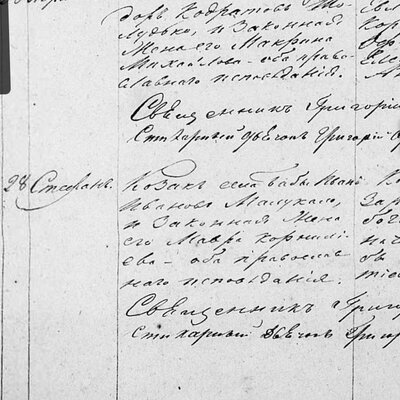 доръ Кодратовъ Шо-
лудько, и законная
жена его Макрина
Михайлова - оба право-
славнаго исповѣданія.
Священникъ Григорій
Стихарный дьячокъ Григорій
28 Стефанъ. Козакъ села Бабы Иванъ
Ивановъ
и законная жена
его Мавра Корнилі-
ева - оба православ
наго исповѣданія.
Священникъ Григо
Стихарный дьячокъ Григор